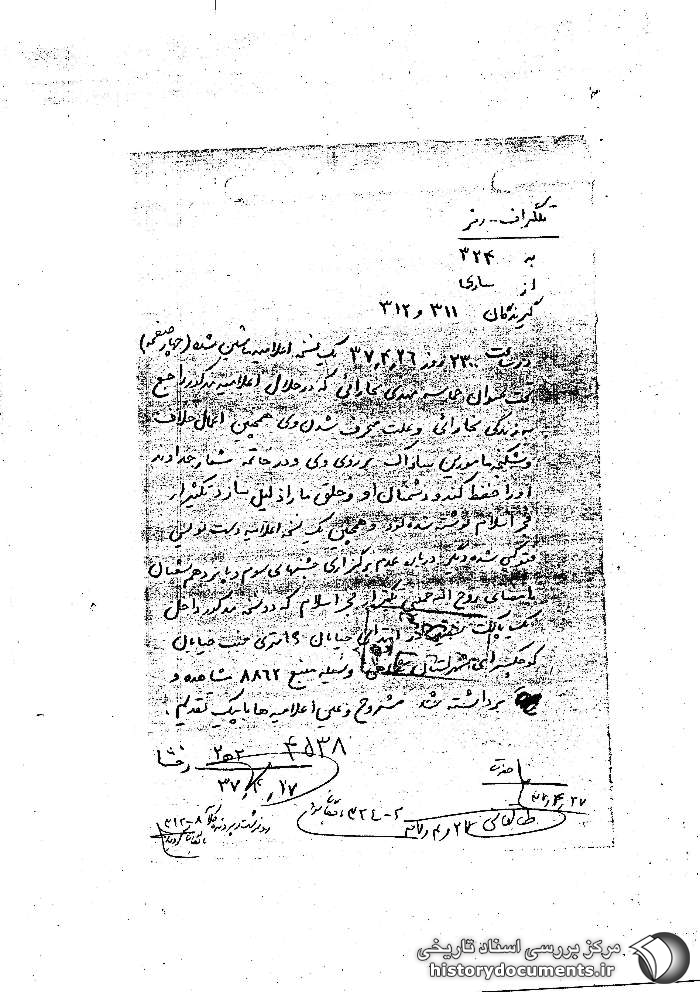 تلگراف - رمز
به ۳۲۴
از ساری
گیرندگان ۳۱۱ و ۳۱۲
در ساعت ۲۳۰۰ روز ۳۷٫۴٫۲۶ یک نسخه اعلامیه ماشین شده (چهار صفحه)
تحت عنوان حماسه مهدی بخارائی که در خلال اعلامیه مذکور راجع
به زندگی بخارائی و علت منحرف شدن وی همچنین اعمال خلاف
و شکنجه مامورین ساواک بر روی وی و در خاتمه شعار خداوند
او را حفظ کند و دشمنان او و خلق ما را ذلیل سازد تکثیر از
فجر اسلام نوشته شده بود و همچنین یک نسخه اعلامیه دست نویس
فتوکپی شده دیگر درباره عدم برگزاری جشنهای سوم و پانزدهم شعبان
بامضای روح اله خمینی تکثیر از فجر اسلام که دو نسخه مذکور داخل
یک پاکت در ابتدای خیابان ۱۹ متری جنب خیابان
شهرستان وسیله منبع ۸۸۶۲ مشاهده و
برداشته شد مشروح و عین اعلامیه ها با پیک تقدیم.
۴۵۳۸
۲ه۲
رخشا
۳۷٫۴٫۲۷
۳۷٫۴٫۲۷
طالقانی ۲۷ و ۴ و ۳۷
۳۲۴-۲
۳۱۲-۸
مرکز بررسی اسناد تاریخی
historydocuments.ir